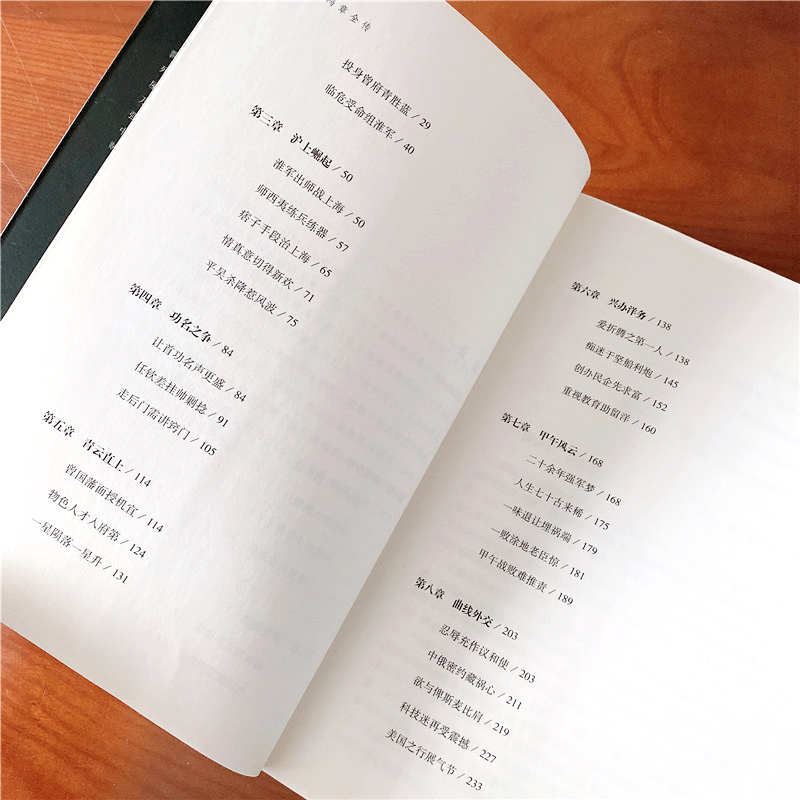 章全传
投身曾府青胜蓝 / 29
临危受命组淮军 / 40
第三章 沪上崛起 / 50
淮军出师战上海 / 50
师西夷练兵练器 / 57
痞子手段治上海 / 65
情真意切得新欢 / 71
平吴杀降惹风波 / 75
第四章 功名之争 / 84
让首功名声更盛 / 84
任钦差挂帅剿捻 / 91
走后门需讲窍门 / 105
第五章 青云直上 / 114
曾国藩面授机宜 / 114
物色人才入府第 / 124
一星陨落一星升 / 131
第六章 兴办洋务 / 138
爱折腾之第一人 / 138
痴迷于坚船利炮 / 145
创办民企先求富 / 152
重视教育助留洋 / 160
第七章 甲午风云 / 168
二十余年强军梦 / 168
人生七十古来稀 / 175
一味退让埋祸端 / 179
一败涂地老臣惊 / 181
甲午战败难推责 / 189
第八章 曲线外交 / 203
忍辱充作议和使 / 203
中俄密约藏祸心 / 211
欲与俾斯麦比肩 / 219
科技迷再受震撼 / 227
美国之行展气节 / 233